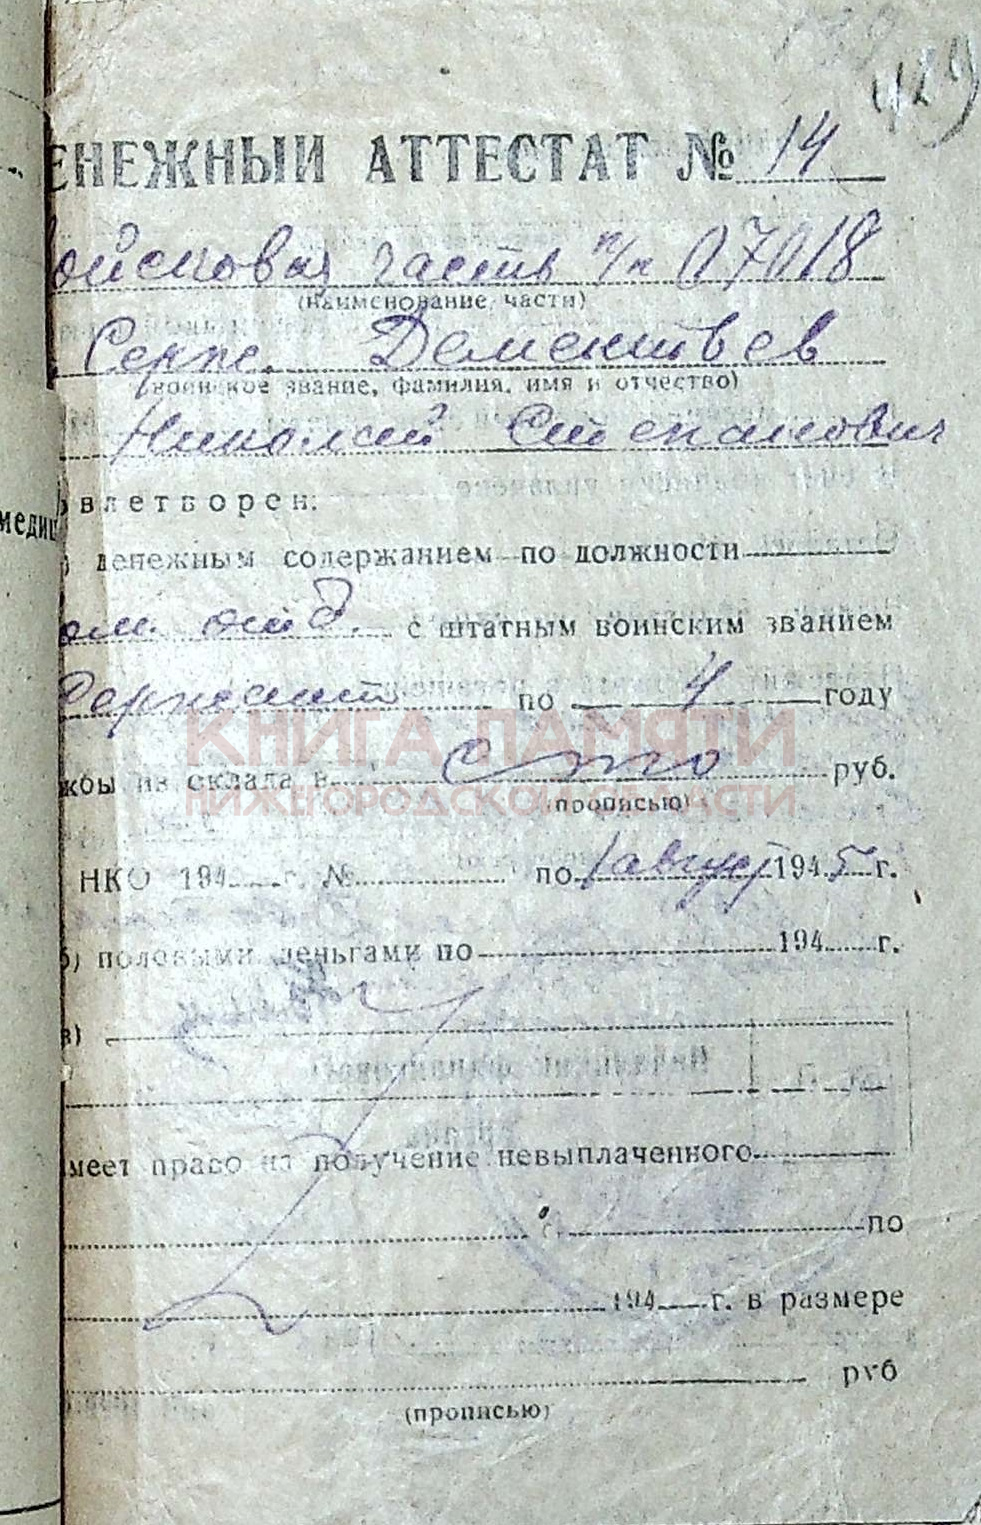 129
ЕНЕЖНЫЙ АТТЕСТАТ № 14
Войсковая часть п/п 07018
(наименование части)
Серж. Дементьев
(воинское звание, фамилия, имя и отчество)
Николай Степанович
влетворен:
медиц
денежным содержанием по должности
ом. отд. с штатным воинским званием
Сержант по 4 году
жбы из склада в сто руб.
(прописью)
НКО 194 г. № по 1 август 1945 г.
б) полевыми деньгами по 194 г.
в)
меет право на получение невыплаченного
с по
194 г. в размере
руб
(прописью)
КНИГА ПАМЯТИ
НИЖЕГОРОДСКОЙ ОБЛАСТИ